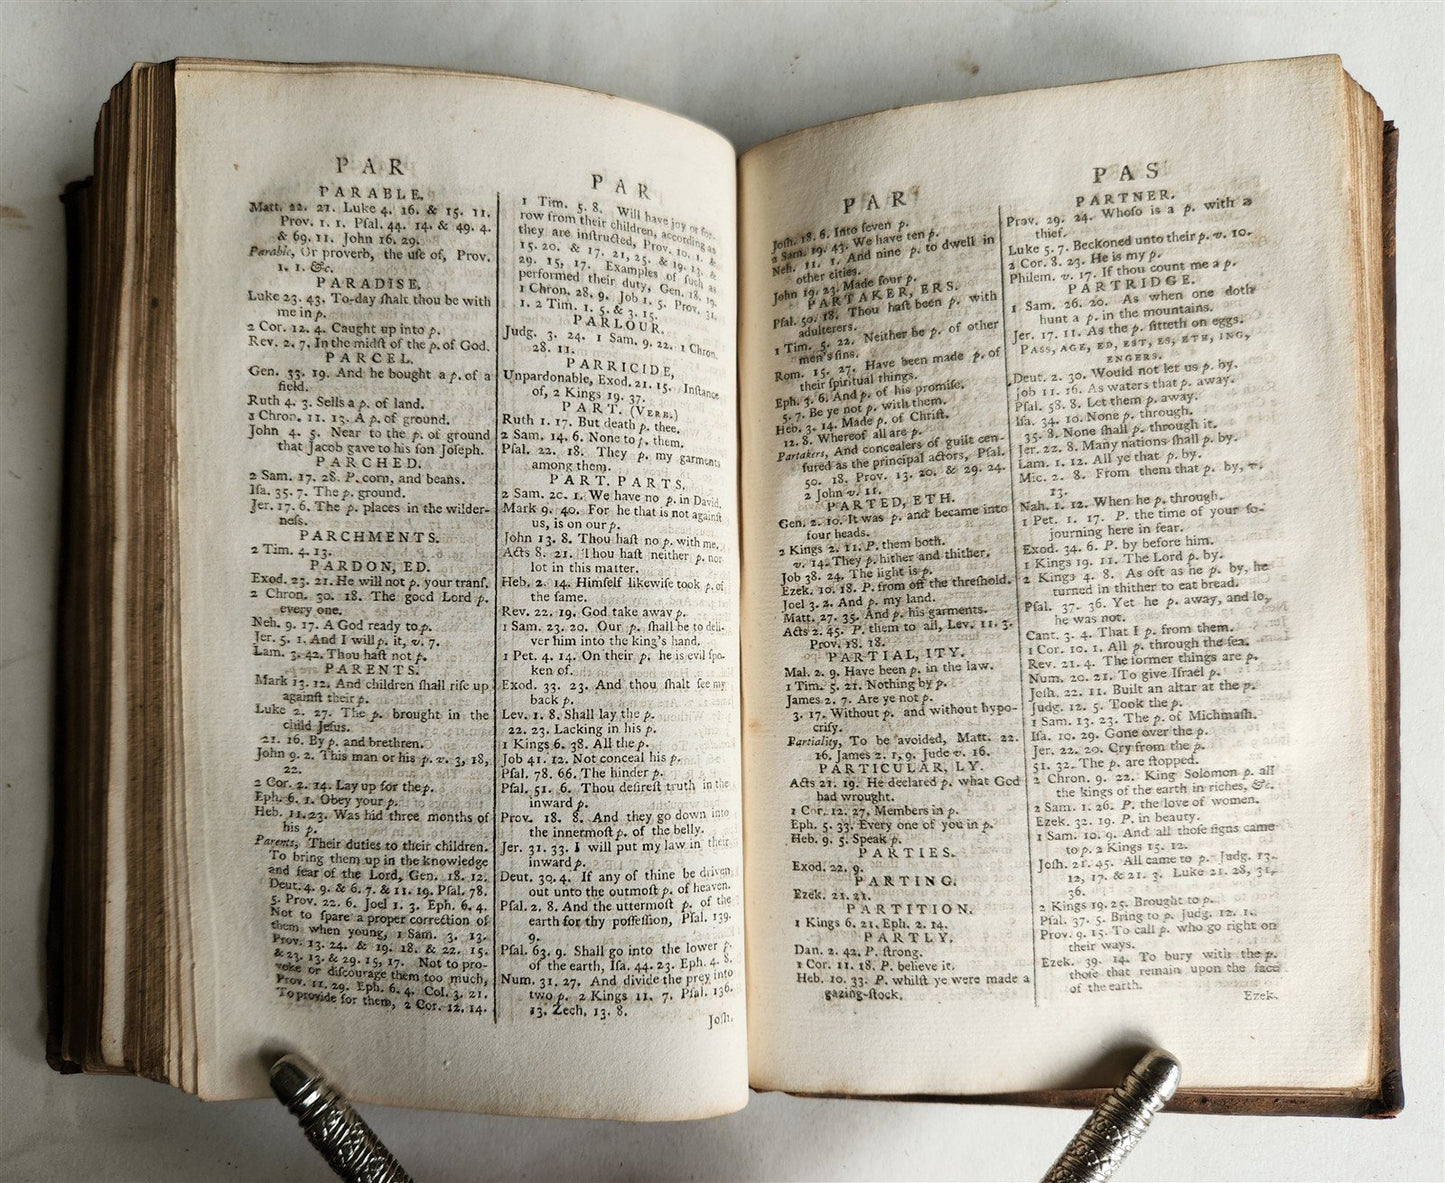 PAR
PARABLE.
Matt. 22. 21. Luke 4. 16. & 15. 11.
Prov. 1. 1. Pſal. 44. 14. & 49. 4.
& 69. 11. John 16. 29.
Parable, Or proverb, the uſe of, Prov.
1. 1. &c.
PARADISE.
Luke 23. 43. To-day ſhalt thou be with
me in p.
2 Cor. 12. 4. Caught up into p.
Rev. 2. 7. In the midſt of the p. of God.
PARCEL.
Gen. 33. 19. And he bought a p. of a
field.
Ruth 4. 3. Sells a p. of land.
1 Chron. 11. 13. A p. of ground.
John 4. 5. Near to the p. of ground
that Jacob gave to his ſon Joſeph.
PARCHED.
2 Sam. 17. 28. P. corn, and beans.
Iſa. 35. 7. The p. ground.
Jer. 17. 6. The p. places in the wilder-
neſs.
PARCHMENTS.
2 Tim. 4. 13.
PARDON, ED.
Exod. 23. 21. He will not p. your tranſ.
2 Chron. 30. 18. The good Lord p.
every one.
Neh. 9. 17. A God ready to p.
Jer. 5. 1. And I will p. it, v. 7.
Lam. 3. 42. Thou haſt not p.
PARENTS.
Mark 13. 12. And children ſhall riſe up
againſt their p.
Luke 2. 27. The p. brought in the
child Jeſus.
21. 16. By p. and brethren.
John 9. 2. This man or his p. v. 3, 18,
22.
2 Cor. 2. 14. Lay up for the p.
Eph. 6. 1. Obey your p.
Heb. 11. 23. Was hid three months of
his p.
Parents, Their duties to their children.
To bring them up in the knowledge
and fear of the Lord, Gen. 18. 12.
Deut. 4. 9. & 6. 7. & 11. 19. Pſal. 78.
5. Prov. 22. 6. Joel 1. 3. Eph. 6. 4.
Not to ſpare a proper correction of
them when young, 1 Sam. 3. 13.
Prov. 13. 24. & 19. 18. & 22. 15.
& 23. 13. & 29. 15, 17. Not to pro-
voke or diſcourage them too much,
Prov. 11. 29. Eph. 6. 4. Col. 3. 21.
To provide for them, 2 Cor. 12. 14.
PAR
1 Tim. 5. 8. Will have joy or ſor-
row from their children, according as
they are inſtructed, Prov. 10. 1. &
15. 20. & 17. 21, 25. & 19. 13. &
29. 15, 17. Examples of ſuch as
performed their duty, Gen. 18. 19.
1 Chron. 28. 9. Job 1. 5. Prov. 31.
1. 2 Tim. 1. 5. & 3. 15.
PARLOUR.
Judg. 3. 24. 1 Sam. 9. 22. 1 Chron.
28. 11.
PARRICIDE,
Unpardonable, Exod. 21. 15. Inſtance
of, 2 Kings 19. 37.
PART. (VERB.)
Ruth 1. 17. But death p. thee.
2 Sam. 14. 6. None to p. them.
Pſal. 22. 18. They p. my garments
among them.
PART. PARTS.
2 Sam. 20. 1. We have no p. in David.
Mark 9. 40. For he that is not againſt
us, is on our p.
John 13. 8. Thou haſt no p. with me.
Acts 8. 21. Thou haſt neither p. nor
lot in this matter.
Heb. 2. 14. Himſelf likewiſe took p. of
the ſame.
Rev. 22. 19. God take away p.
1 Sam. 23. 20. Our p. ſhall be to deli-
ver him into the king's hand.
1 Pet. 4. 14. On their p. he is evil ſpo-
ken of.
Exod. 33. 23. And thou ſhalt ſee my
back p.
Lev. 1. 8. Shall lay the p.
22. 23. Lacking in his p.
1 Kings 6. 38. All the p.
Job 41. 12. Not conceal his p.
Pſal. 78. 66. The hinder p.
Pſal. 51. 6. Thou deſireſt truth in the
inward p.
Prov. 18. 8. And they go down into
the innermoſt p. of the belly.
Jer. 31. 33. I will put my law in their
inward p.
Deut. 30. 4. If any of thine be driven
out unto the outmoſt p. of heaven.
Pſal. 2. 8. And the uttermoſt p. of the
earth for thy poſſeſſion, Pſal. 139.
9.
Pſal. 63. 9. Shall go into the lower p.
of the earth, Iſa. 44. 23. Eph. 4. 8.
Num. 31. 27. And divide the prey into
two p. 2 Kings 11. 7. Pſal. 136.
13. Zech, 13. 8.
Joſh.
PAR
Joſh. 18. 6. Into ſeven p.
2 Sam. 19. 43. We have ten p.
Neh. 11. 1. And nine p. to dwell in
other cities.
John 19. 23. Made four p.
PARTAKER, ERS.
Pſal. 50. 18. Thou haſt been p. with
adulterers.
1 Tim. 5. 22. Neither be p. of other
men's ſins.
Rom. 15. 27. Have been made p. of
their ſpiritual things.
Eph. 3. 6. And p. of his promiſe.
5. 7. Be ye not p. with them.
Heb. 3. 14. Made p. of Chriſt.
12. 8. Whereof all are p.
Partakers, And concealers of guilt cen-
ſured as the principal actors, Pſal.
50. 18. Prov. 13. 20. & 29. 24.
2 John v. 11.
PARTED, ETH.
Gen. 2. 10. It was p. and became into
four heads.
2 Kings 2. 11. P. them both.
v. 14. They p. hither and thither.
Job 38. 24. The light is p.
Ezek. 10. 18. P. from off the threſhold.
Joel 3. 2. And p. my land.
Matt. 27. 35. And p. his garments.
Acts 2. 45. P. them to all, Lev. 11. 3.
Prov. 18. 18.
PARTIAL, ITY.
Mal. 2. 9. Have been p. in the law.
1 Tim. 5. 21. Nothing by p.
James 2. 7. Are ye not p.
3. 17. Without p. and without hypo-
criſy.
Partiality, To be avoided, Matt. 22.
16. James 2. 1, 9. Jude v. 16.
PARTICULAR, LY.
Acts 21. 19. He declared p. what God
had wrought.
1 Cor. 12. 27. Members in p.
Eph. 5. 33. Every one of you in p.
Heb. 9. 5. Speak p.
PARTIES.
Exod. 22. 9.
PARTING.
Ezek. 21. 21.
PARTITION.
1 Kings 6. 21. Eph. 2. 14.
PARTLY.
Dan. 2. 42. P. ſtrong.
1 Cor. 11. 18. P. believe it.
Heb. 10. 33. P. whilſt ye were made a
gazing-ſtock.
PAS
PARTNER.
Prov. 29. 24. Whoſo is a p. with a
thief.
Luke 5. 7. Beckoned unto their p. v. 10.
2 Cor. 8. 23. He is my p.
Philem. v. 17. If thou count me a p.
PARTRIDGE.
1 Sam. 26. 20. As when one doth
hunt a p. in the mountains.
Jer. 17. 11. As the p. ſitteth on eggs.
PASS, AGE, ED, EST, ES, ETH, ING,
ENGERS.
Deut. 2. 30. Would not let us p. by.
Job 11. 16. As waters that p. away.
Pſal. 58. 8. Let them p. away.
Iſa. 34. 10. None p. through.
35. 8. None ſhall p. through it.
Jer. 22. 8. Many nations ſhall p. by.
Lam. 1. 12. All ye that p. by.
Mic. 2. 8. From them that p. by, v.
13.
Nah. 1. 12. When he p. through.
1 Pet. 1. 17. P. the time of your ſo-
journing here in fear.
Exod. 34. 6. P. by before him.
1 Kings 19. 11. The Lord p. by.
2 Kings 4. 8. As oft as he p. by, he
turned in thither to eat bread.
Pſal. 37. 36. Yet he p. away, and lo,
he was not.
Cant. 3. 4. That I p. from them.
1 Cor. 10. 1. All p. through the ſea.
Rev. 21. 4. The former things are p.
Num. 20. 21. To give Iſrael p.
Joſh. 22. 11. Built an altar at the p.
Judg. 12. 5. Took the p.
1 Sam. 13. 23. The p. of Michmaſh.
Iſa. 10. 29. Gone over the p.
Jer. 22. 20. Cry from the p.
51. 32. The p. are ſtopped.
2 Chron. 9. 22. King Solomon p. all
the kings of the earth in riches, &c.
2 Sam. 1. 26. P. the love of women.
Ezek. 32. 19. P. in beauty.
1 Sam. 10. 9. And all thoſe ſigns came
to p. 2 Kings 15. 12.
Joſh. 21. 45. All came to p. Judg. 13.
12, 17. & 21. 3. Luke 21. 28, 31,
36.
2 Kings 19. 25. Brought to p.
Pſal. 37. 5. Bring to p. Judg. 12. 1.
Prov. 9. 15. To call p. who go right on
their ways.
Ezek. 39. 14. To bury with the p.
thoſe that remain upon the face
of the earth.
Ezek.